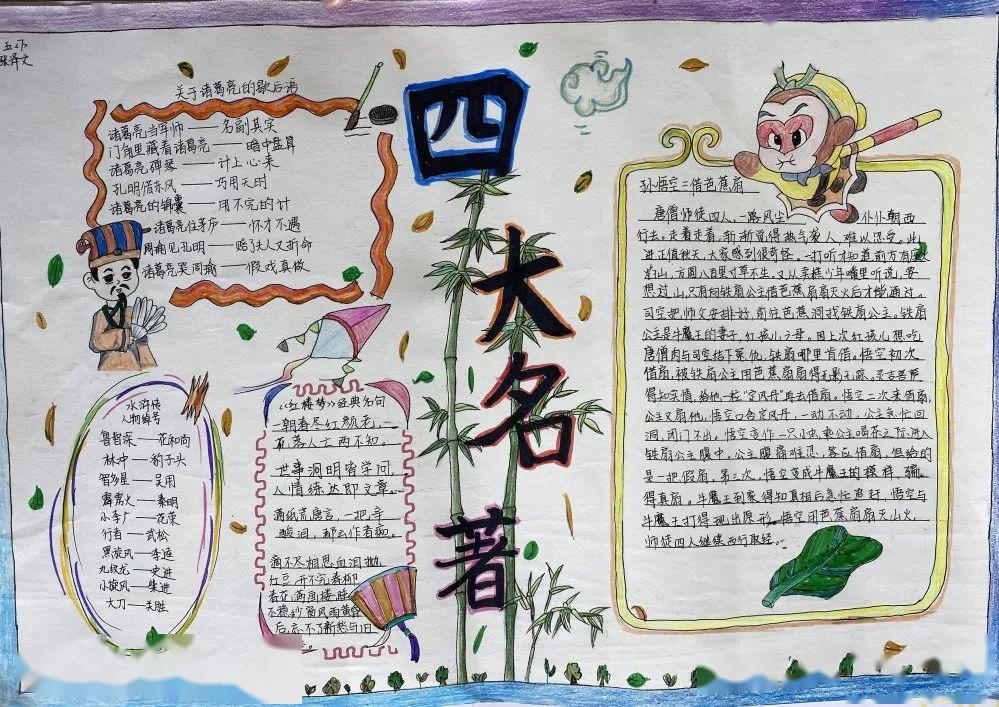 五(7)
张泽文
关于诸葛亮的歇后语
诸葛亮当军师——名副其实
门角里藏着诸葛亮——暗中盘算
诸葛亮弹琴——计上心来
孔明借东风——巧用天时
诸葛亮的锦囊——用不完的计
诸葛亮住茅庐——怀才不遇
周瑜见孔明——赔了夫人又折命
诸葛亮哭周瑜——假戏真做
水浒传
人物绰号
鲁智深——花和尚
林冲——豹子头
智多星——吴用
霹雳火——秦明
小李广——花荣
行者——武松
黑旋风——李逵
九纹龙——史进
小旋风——柴进
大刀——关胜
《红楼梦》经典名句
一朝春尽红颜老,
花落人亡两不知。
世事洞明皆学问,
人情练达即文章。
满纸荒唐言,一把辛
酸泪,都云作者痴。
滴不尽相思血泪抛
红豆,开不完春柳
春花满画楼,睡
不稳纱窗风雨黄昏
后,忘不了新愁与旧
四大名著
孙悟空三借芭蕉扇
唐僧师徒四人,一路风尘仆仆朝西
行去。走着走着,渐渐觉得热气袭人,难以忍受。此
进正值秋天,大家感到很奇怪。一打听才知道前方有火
焰山,方圆八百里寸草不生。又从卖糕少年嘴里听说,要
想过山,只有向铁扇公主借芭蕉扇扇灭火后才能通过。
司空把师父安排好,前往芭蕉洞找铁扇公主。铁扇
公主是牛魔王的妻子,红孩儿之母。因上次红孩儿想吃
唐僧肉与司空结下冤仇,铁扇哪里肯借。悟空初次
借扇,被铁扇公主用芭蕉扇扇得无影无踪。灵吉菩萨
得知实情,给他一粒"定风丹"再去借扇。悟空二次来借扇,
公主又扇他,悟空口含定风丹,一动不动。公主急忙回
洞,闭门不出。悟空变作一只小虫,乘公主喝茶之际,进入
铁扇公主腹中。公主腹痛难忍,答应借扇,但给的
是一把假扇。第三次,悟空变成牛魔王的模样,骗
得真扇。牛魔王到家得知真相后急忙追赶,悟空与
牛魔王打得现出原形。悟空用芭蕉扇扇灭山火,
师徒四人继续西行取经。